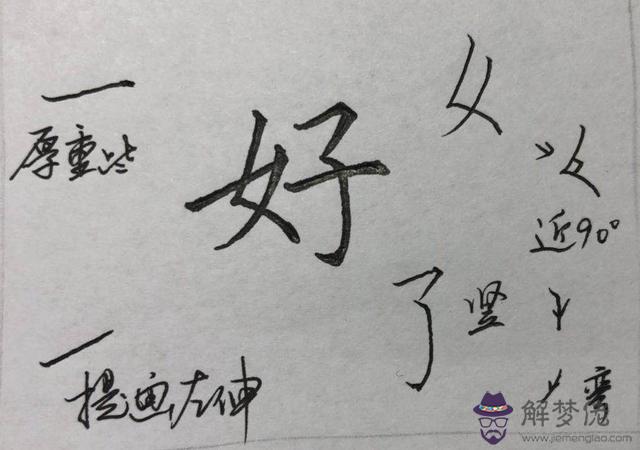 厚重些
好
近90°
了 竖
弯
提画左伸
解梦佬
www.jiemenglao.com